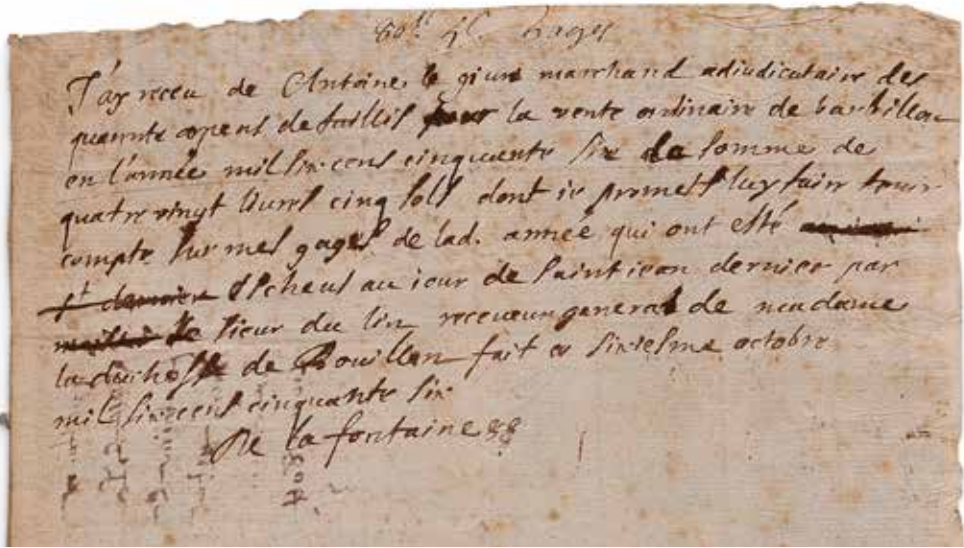 80ll 5s. Gages
J'ay receu de Anthoine le giure marchand adiudicataire des
quarente arpens de taillis pour la vente ordinaire de barbillon
en l'année mil six cens cinquante six la somme de
quatre vingt liures cinq sols dont ie promets luy faire tenir
compte sur mes gages de lad. année qui ont esté
escheus au iour de saint iean dernier par
le sieur du lin receueur general de madame
la duchesse de Bouillon fait ce sixiesme octobre
mil six cens cinquante six
De la fontaine